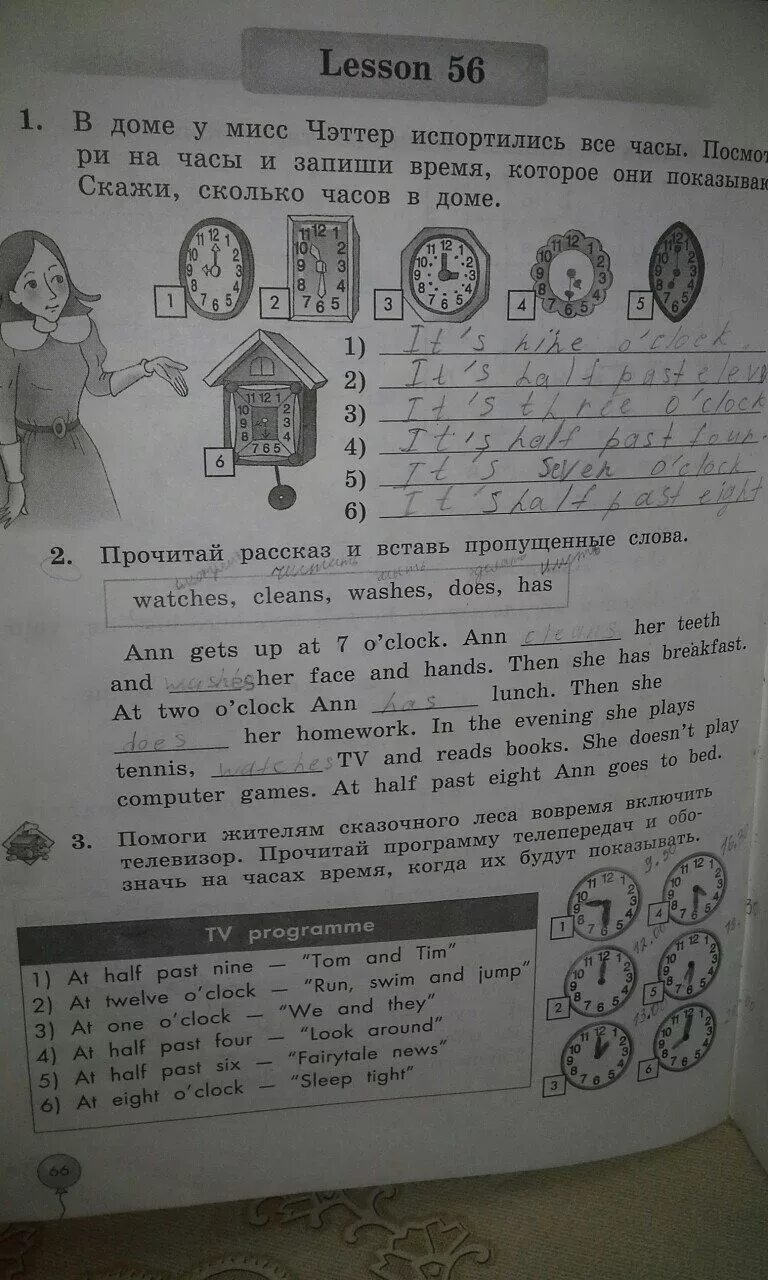 Lesson 56
1. В доме у мисс Чэттер испортились все часы. Посмот
ри на часы и запиши время, которое они показываю
Скажи, сколько часов в доме.
1 2 3 4 5
1) It's nine o'clock
2) It's half past eleve
3) It's three o'clock
4) It's half past four.
5) It's seven o'clock
6) It's half past eight
6
2. Прочитай рассказ и вставь пропущенные слова.
чистить делать иметь
watches, cleans, washes, does, has
Ann gets up at 7 o'clock. Ann cleans her teeth
and washes her face and hands. Then she has breakfast.
At two o'clock Ann has lunch. Then she
does her homework. In the evening she plays
tennis, watches TV and reads books. She doesn't play
computer games. At half past eight Ann goes to bed.
3. Помоги жителям сказочного леса вовремя включить
телевизор. Прочитай программу телепередач и обо-
значь на часах время, когда их будут показывать.
TV programme
1) At half past nine — "Tom and Tim"
2) At twelve o'clock — "Run, swim and jump"
3) At one o'clock — "We and they"
4) At half past four — "Look around"
5) At half past six — "Fairytale news"
6) At eight o'clock — "Sleep tight"
9.30 16.30
1 4
12.00
2 5
13.00
3 6
66